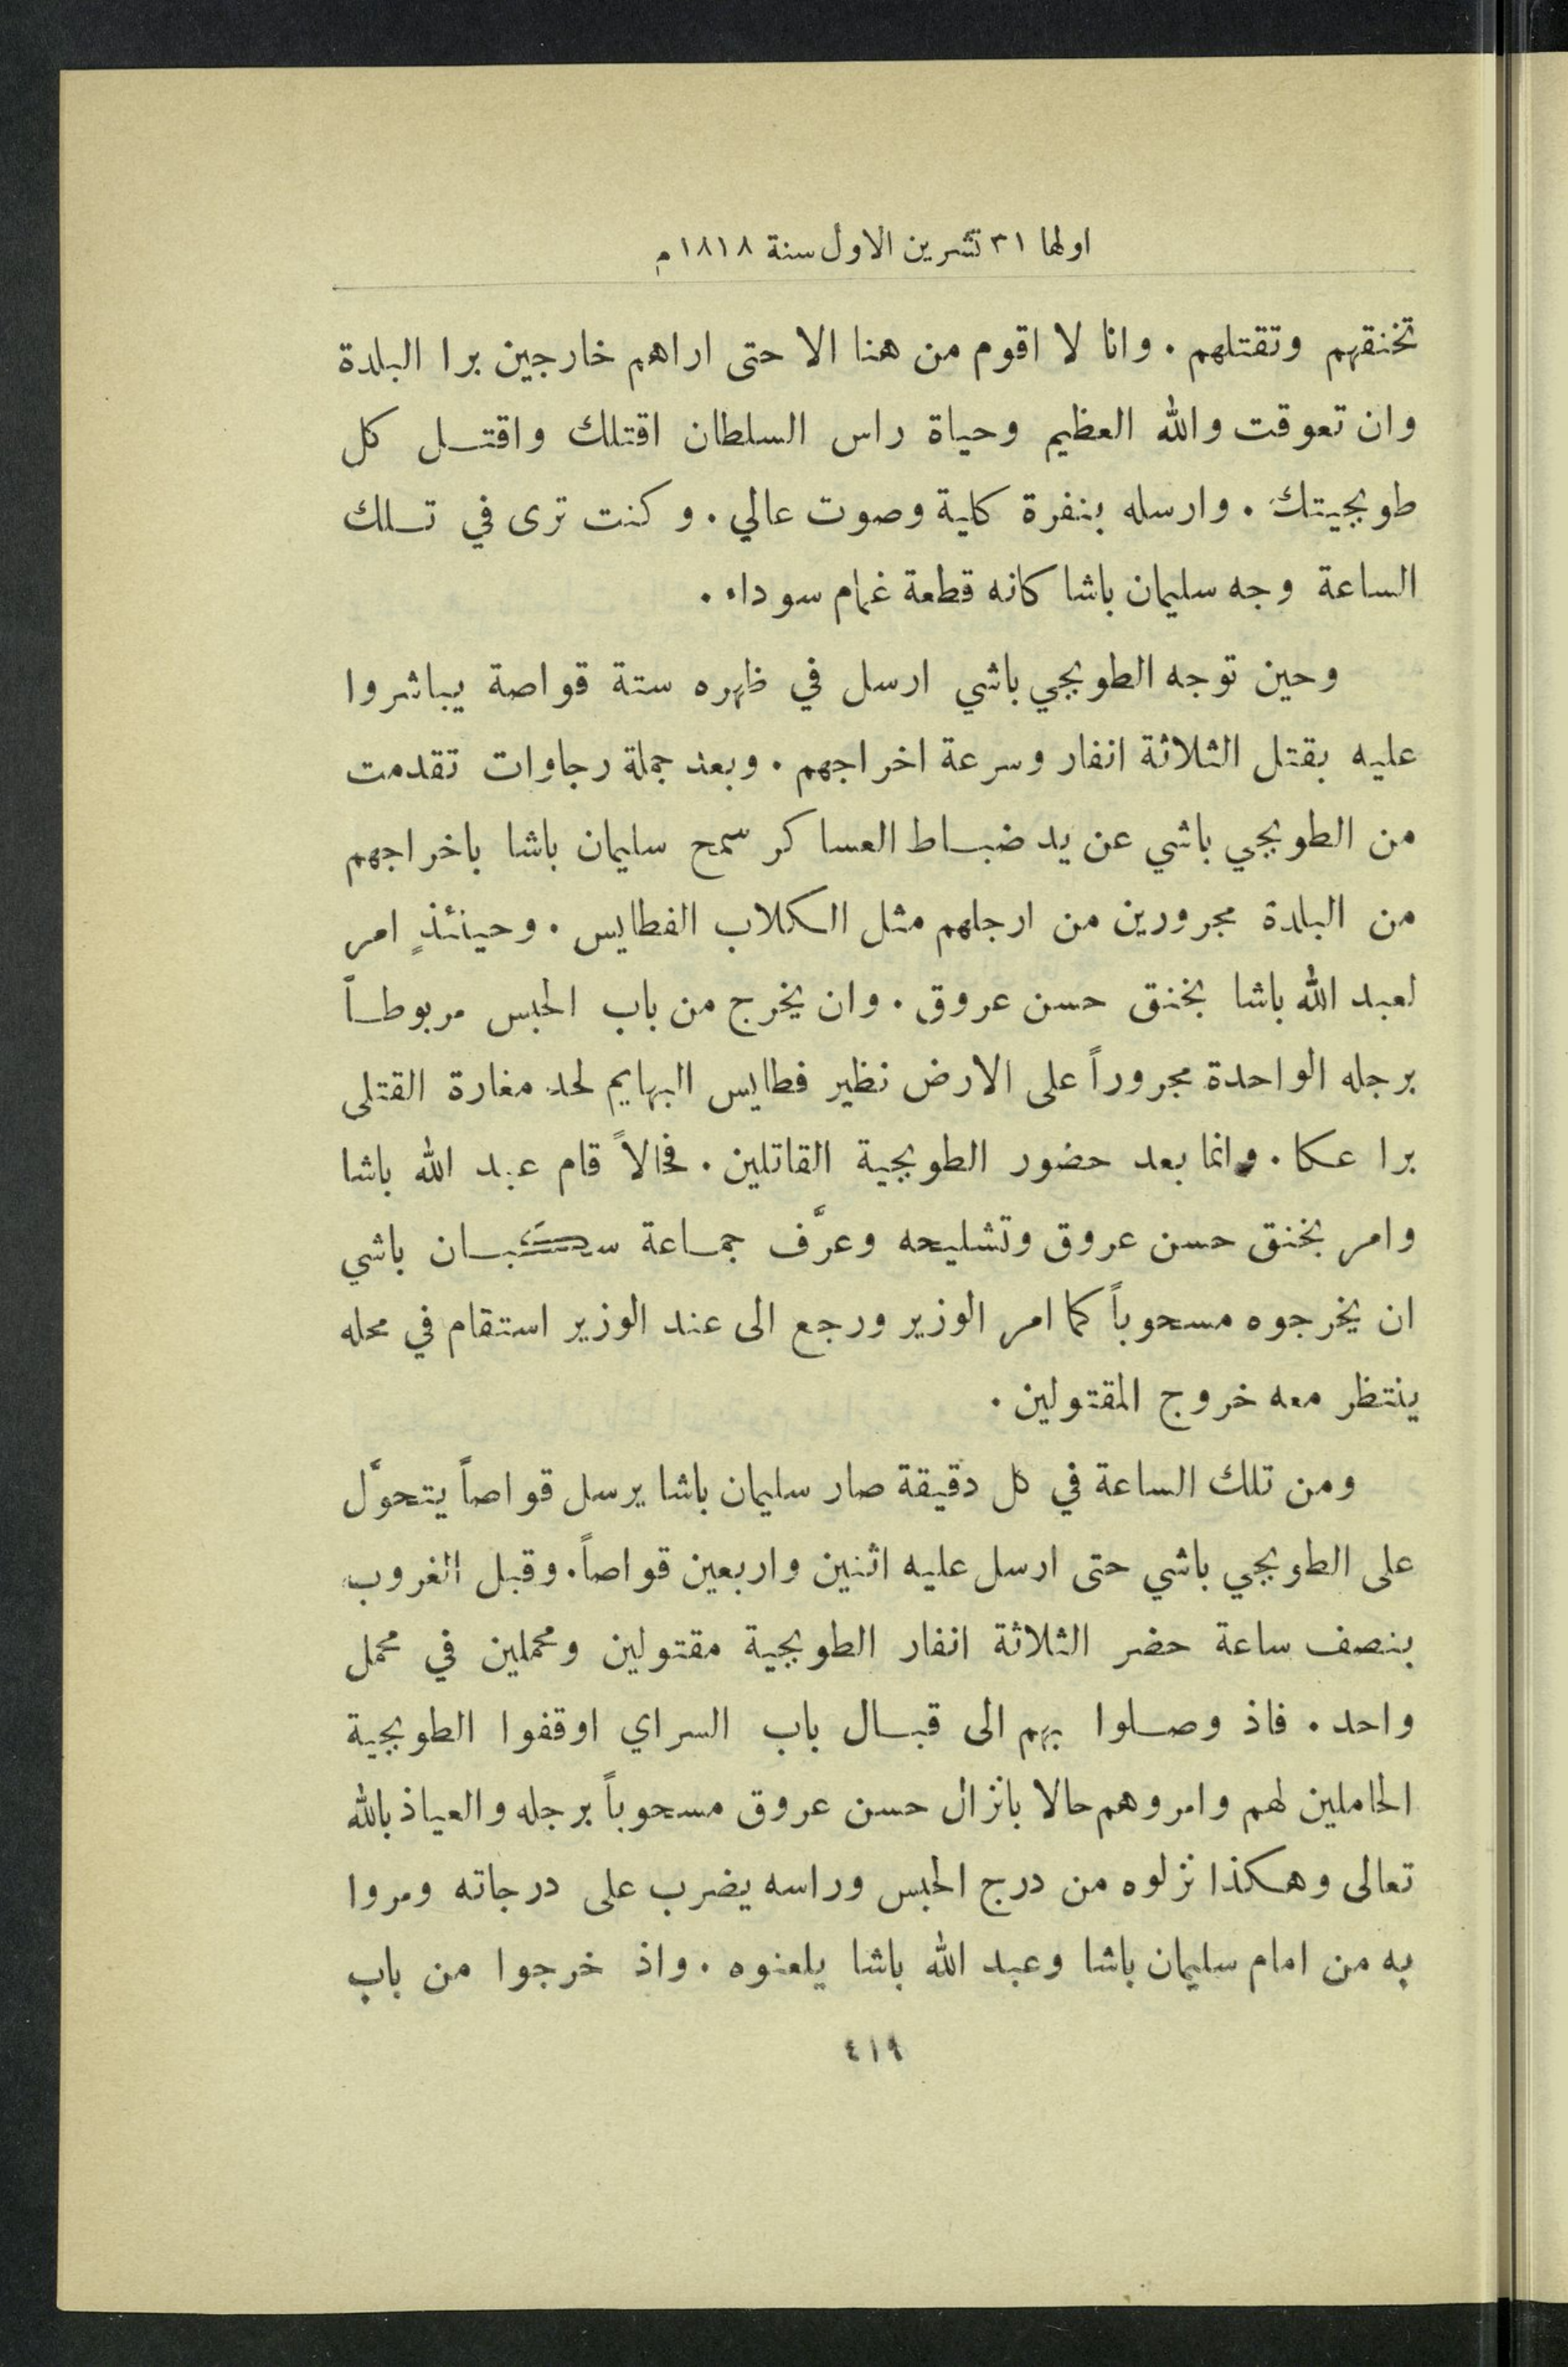 اولها ٣١ تشرين الاول سنة ١٨١٨ م
تخنقهم وتقتلهم . وانا لا اقوم من هنا الا حتى اراهم خارجين برا البلدة
وان تعوقت والله العظيم وحياة راس السلطان اقتلك واقتل كل
طوبجيتك . وارسله بنفرة كلية وصوت عالي . وكنت ترى في تلك
الساعة وجه سليمان باشا كانه قطعة غمام سوداء .
وحين توجه الطوبجي باشي ارسل في ظهره ستة قواصة يباشروا
عليه بقتل الثلاثة انفار وسرعة اخراجهم . وبعد جملة رجاوات تقدمت
من الطوبجي باشي عن يد ضباط العساكر سمح سليمان باشا باخراجهم
من البلدة مجرورين من ارجلهم مثل الكلاب الفطايس . وحينئذٍ امر
لعبد الله باشا بخنق حسن عروق . وان يخرج من باب الحبس مربوطاً
برجله الواحدة مجروراً على الارض نظير فطايس البهايم لحد مغارة القتلى
برا عكا . وانما بعد حضور الطوبجية القاتلين . فحالاً قام عبد الله باشا
وامر بخنق حسن عروق وتشليحه وعرَّف جماعة سكبان باشي
ان يخرجوه مسحوباً كما امر الوزير ورجع الى عند الوزير استقام في محله
ينتظر معه خروج المقتولين .
ومن تلك الساعة في كل دقيقة صار سليمان باشا يرسل قواصاً يتحوَّل
على الطوبجي باشي حتى ارسل عليه اثنين واربعين قواصاً . وقبل الغروب
بنصف ساعة حضر الثلاثة انفار الطوبجية مقتولين ومحملين في محمل
واحد . فاذ وصلوا بهم الى قبال باب السراي اوقفوا الطوبجية
الحاملين لهم وامروهم حالا بانزال حسن عروق مسحوباً برجله والعياذ بالله
تعالى وهكذا نزلوه من درج الحبس وراسه يضرب على درجاته ومروا
به من امام سليمان باشا وعبد الله باشا يلعنوه . واذ خرجوا من باب
٤١٩